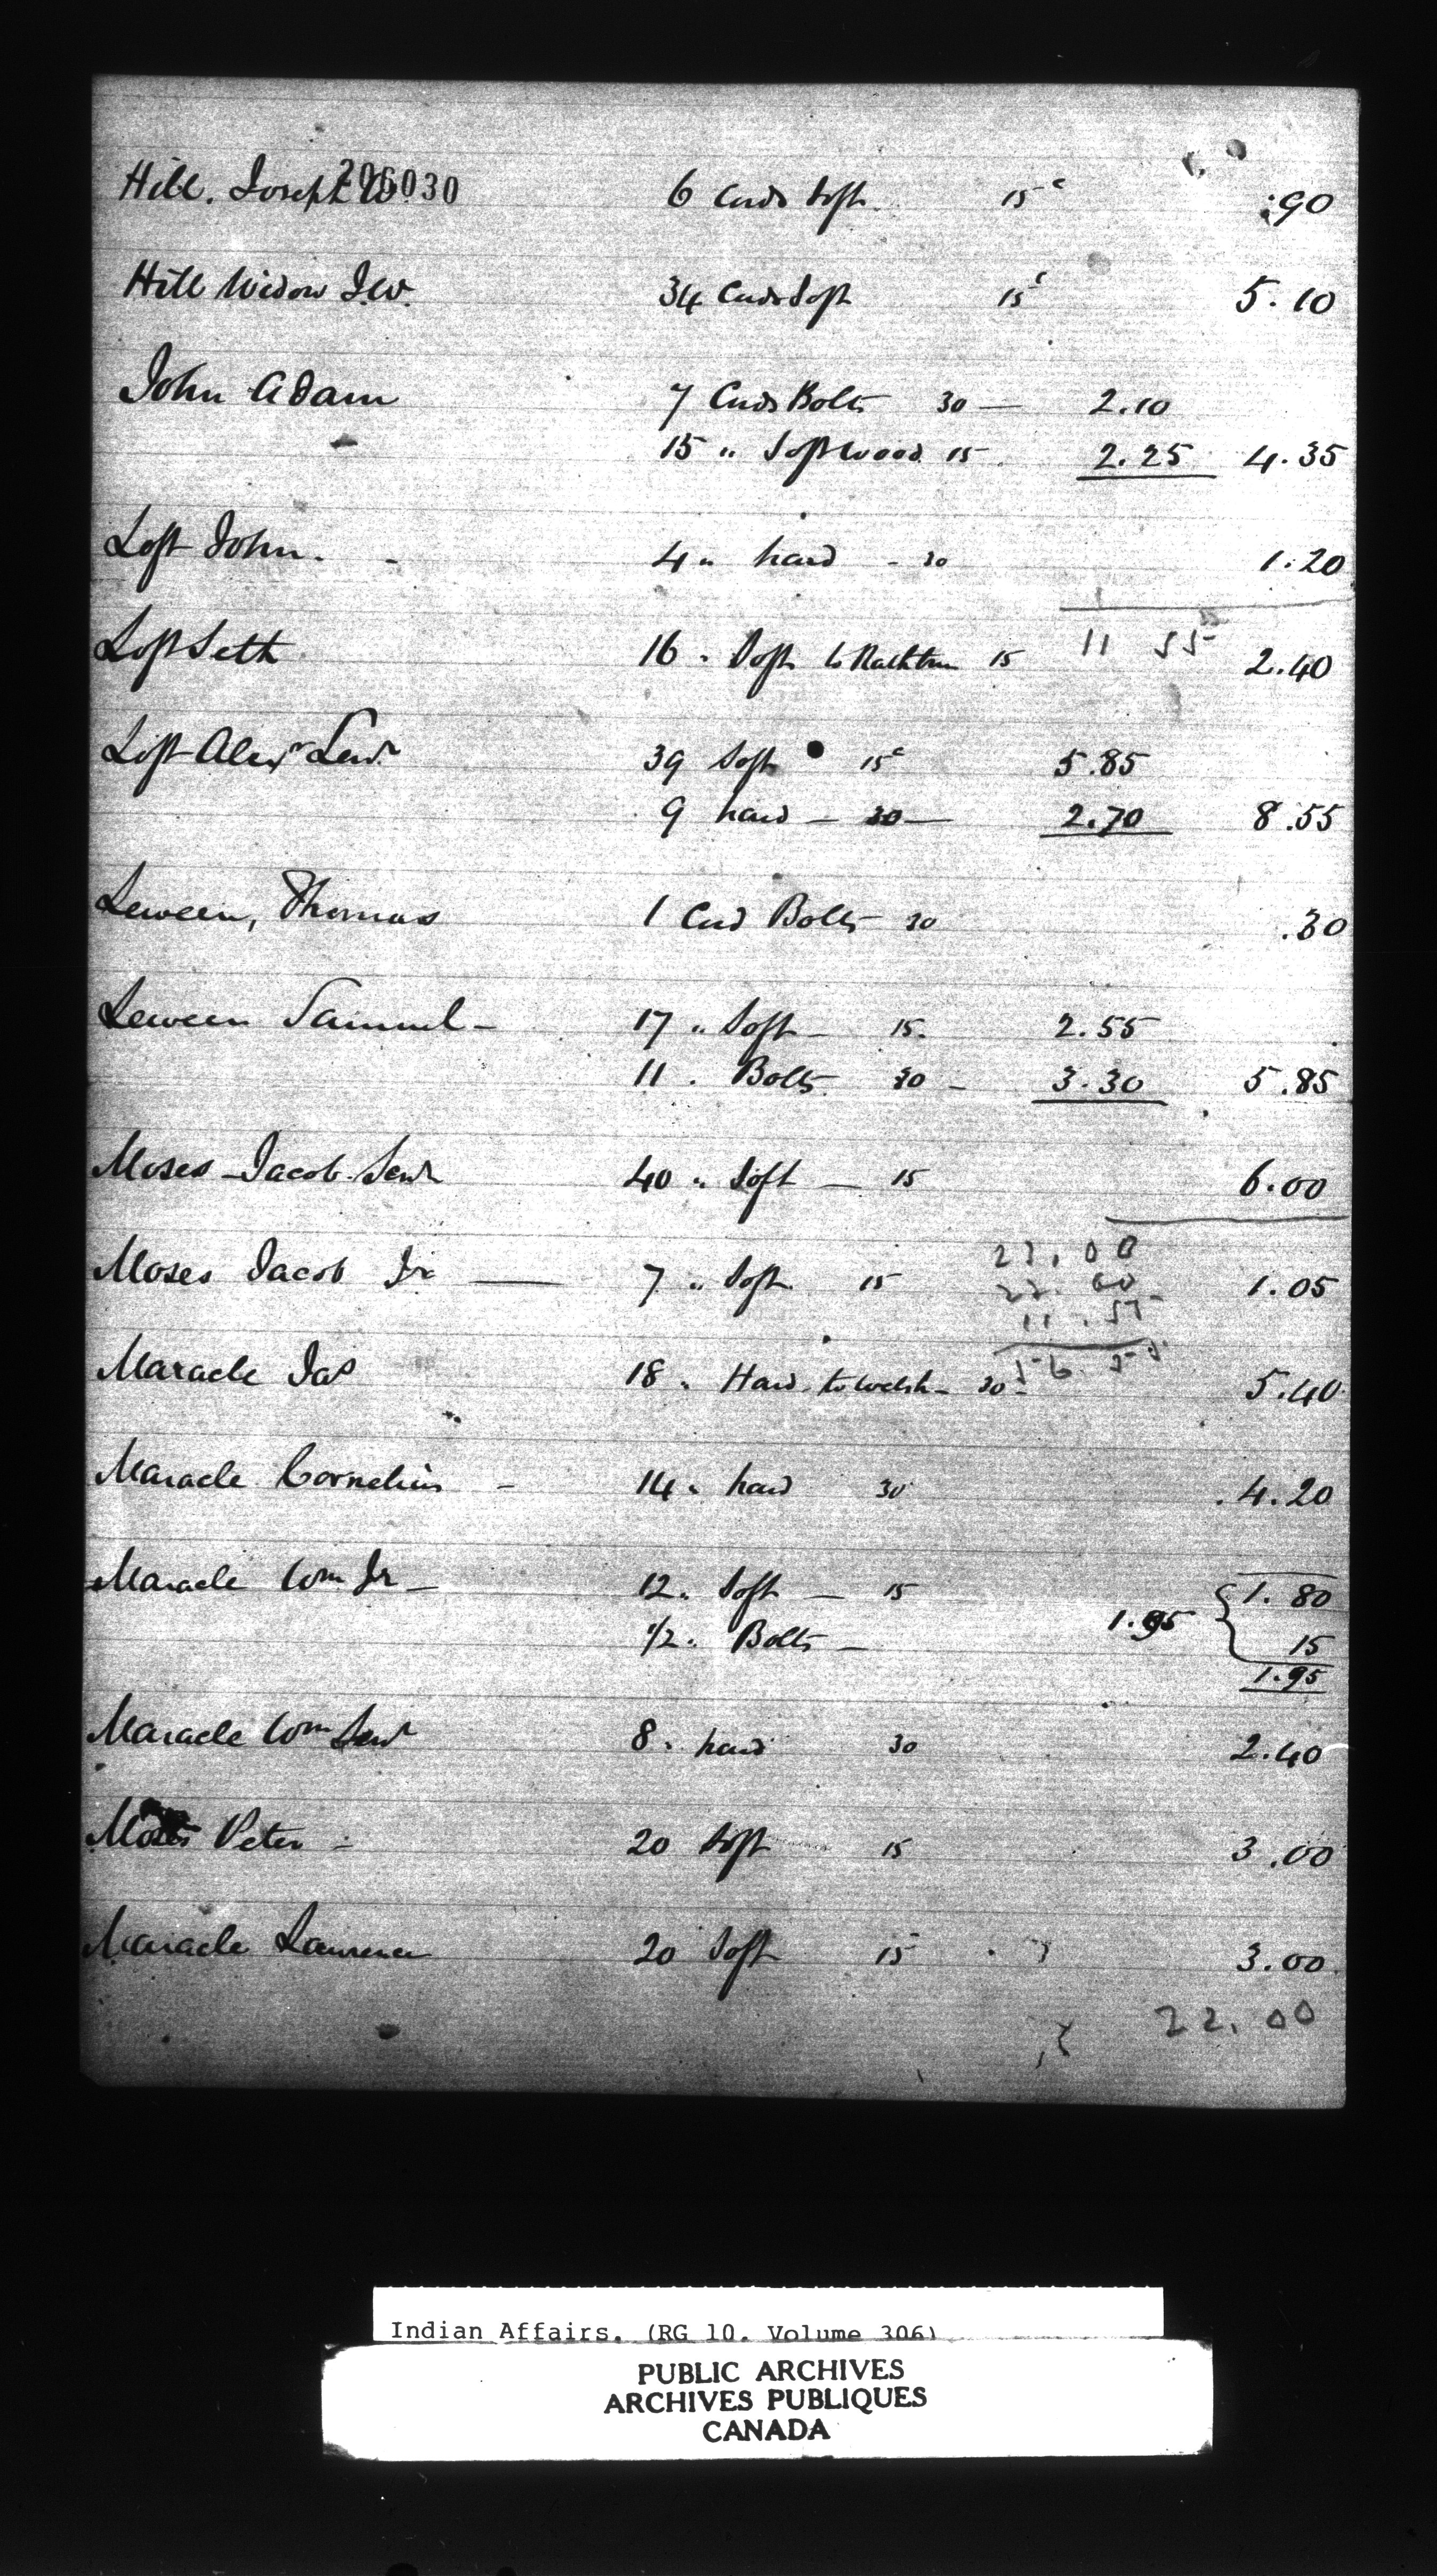 206030
Hill. Joseph W. 6 Cords Soft 15c .90
Hill Widow J.W. 34 Cords Soft 15c 5.10
John Adam 7 Cords Bolts 30 — 2.10
15 " Softwood 15 2.25 4.35
Loft John. - 4 " hard - 30 1.20
11 55
Loft Seth 16 " Soft to Rathbun 15 2.40
Loft Alexr Senr 39 Soft 15c 5.85
9 hard — 30 — 2.70 8.55
Leween, Thomas 1 Cord Bolts 30 .30
Leween Samuel - 17 " Soft - 15 2.55
11 " Bolts 30 - 3.30 5.85
Moses Jacob Senr 40 " Soft — 15 6.00
23.00
Moses Jacob Jr — 7 " Soft 15 1.05
22.00
11.55
56.55
Maracle Jas 18 " Hard to Welsh - 30 - 5.40
Maracle Cornelius - 14 " hard 30 4.20
Maracle Wm Jr - 12 " Soft — 15 1.80
1/2 " Bolts — 1.95 15
1.95
Maracle Wm Senr 8 " hard 30 2.40
Moses Peter - 20 Soft 15 3.00
Maracle Lawrence 20 Soft 15 3.00
22.00
Indian Affairs. (RG 10. Volume 306)
PUBLIC ARCHIVES
ARCHIVES PUBLIQUES
CANADA